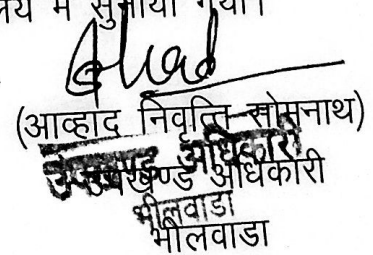 में सुनाया गया।
(आव्हाद निवृत्ति सोमनाथ)
उपखण्ड अधिकारी
उपखण्ड अधिकारी
भीलवाडा
भीलवाडा